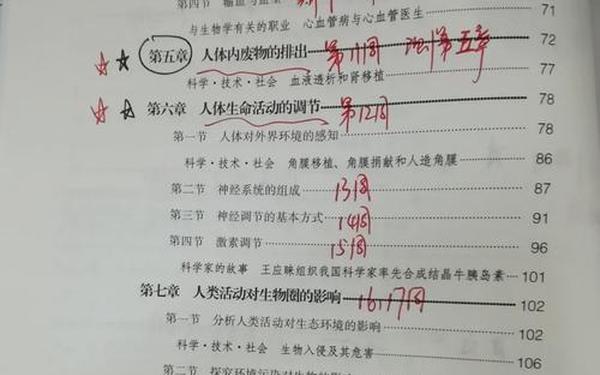 第四节 输血与血型 71
与生物学有关的职业 心血管病与心血管医生
第五章 人体内废物的排出 第11周 测第五章 72
科学·技术·社会 血液透析和肾移植 77
第六章 人体生命活动的调节 第12周 78
第一节 人体对外界环境的感知 78
科学·技术·社会 角膜移植、角膜捐献和人造角膜 86
第二节 神经系统的组成 13周 87
第三节 神经调节的基本方式 14周 91
第四节 激素调节 15周 96
科学家的故事 王应睐组织我国科学家率先合成结晶牛胰岛素 101
第七章 人类活动对生物圈的影响 16、17周 102
第一节 分析人类活动对生态环境的影响 102
科学·技术·社会 生物入侵及其危害 106
第二节 探究环境污染对生物的影响